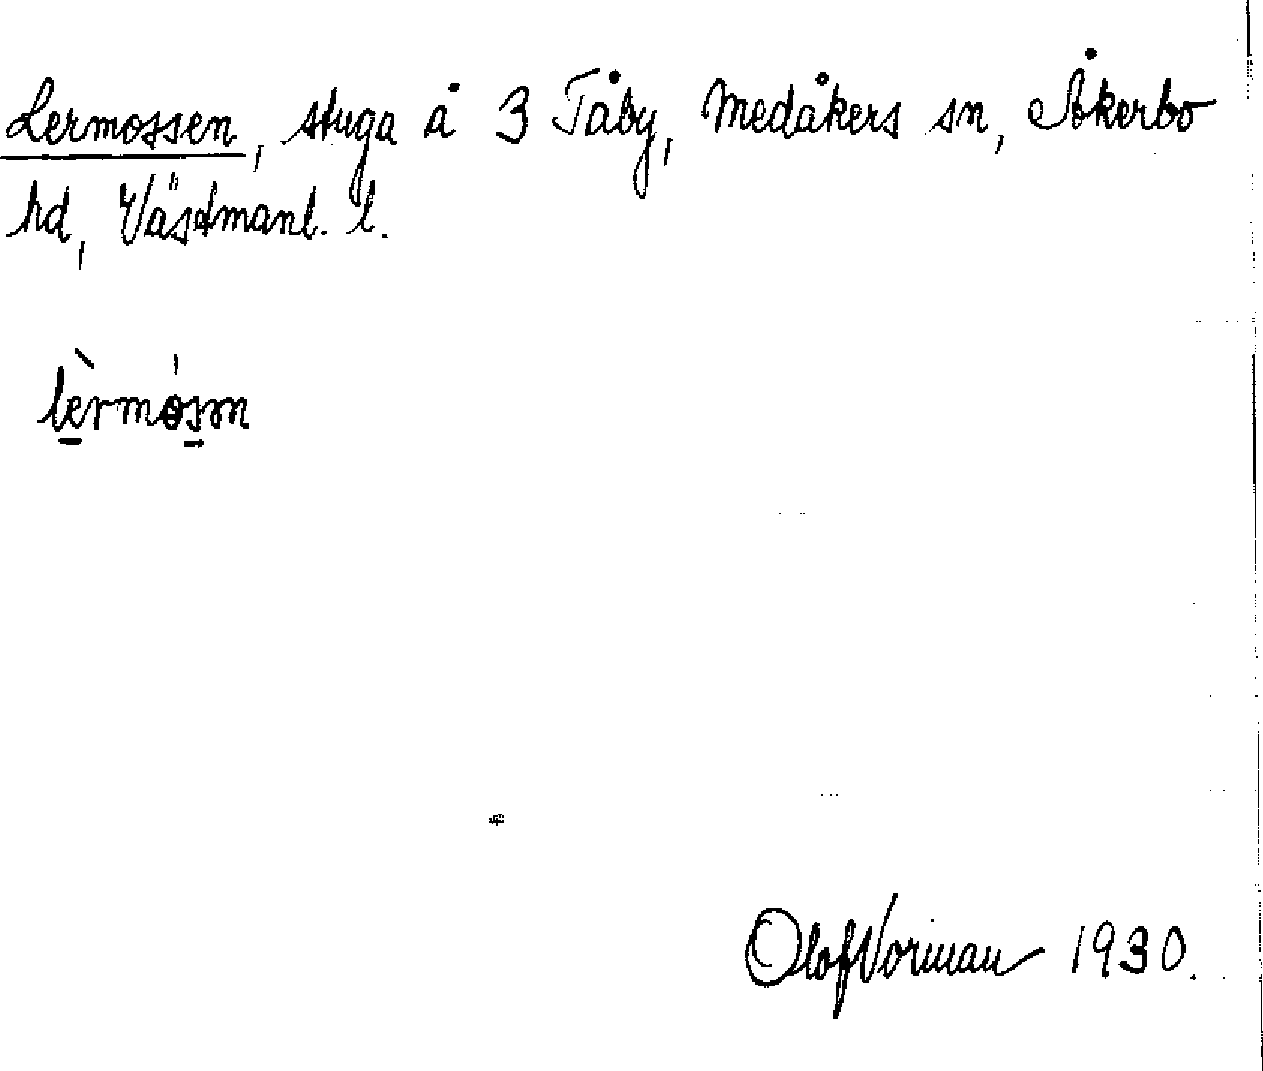 Lermossen, stuga å 3 Tåby, Medåkers sn, Åkerbo
hd, Västmanl. l.
lèrmósṃ
Olof Norman 1930.